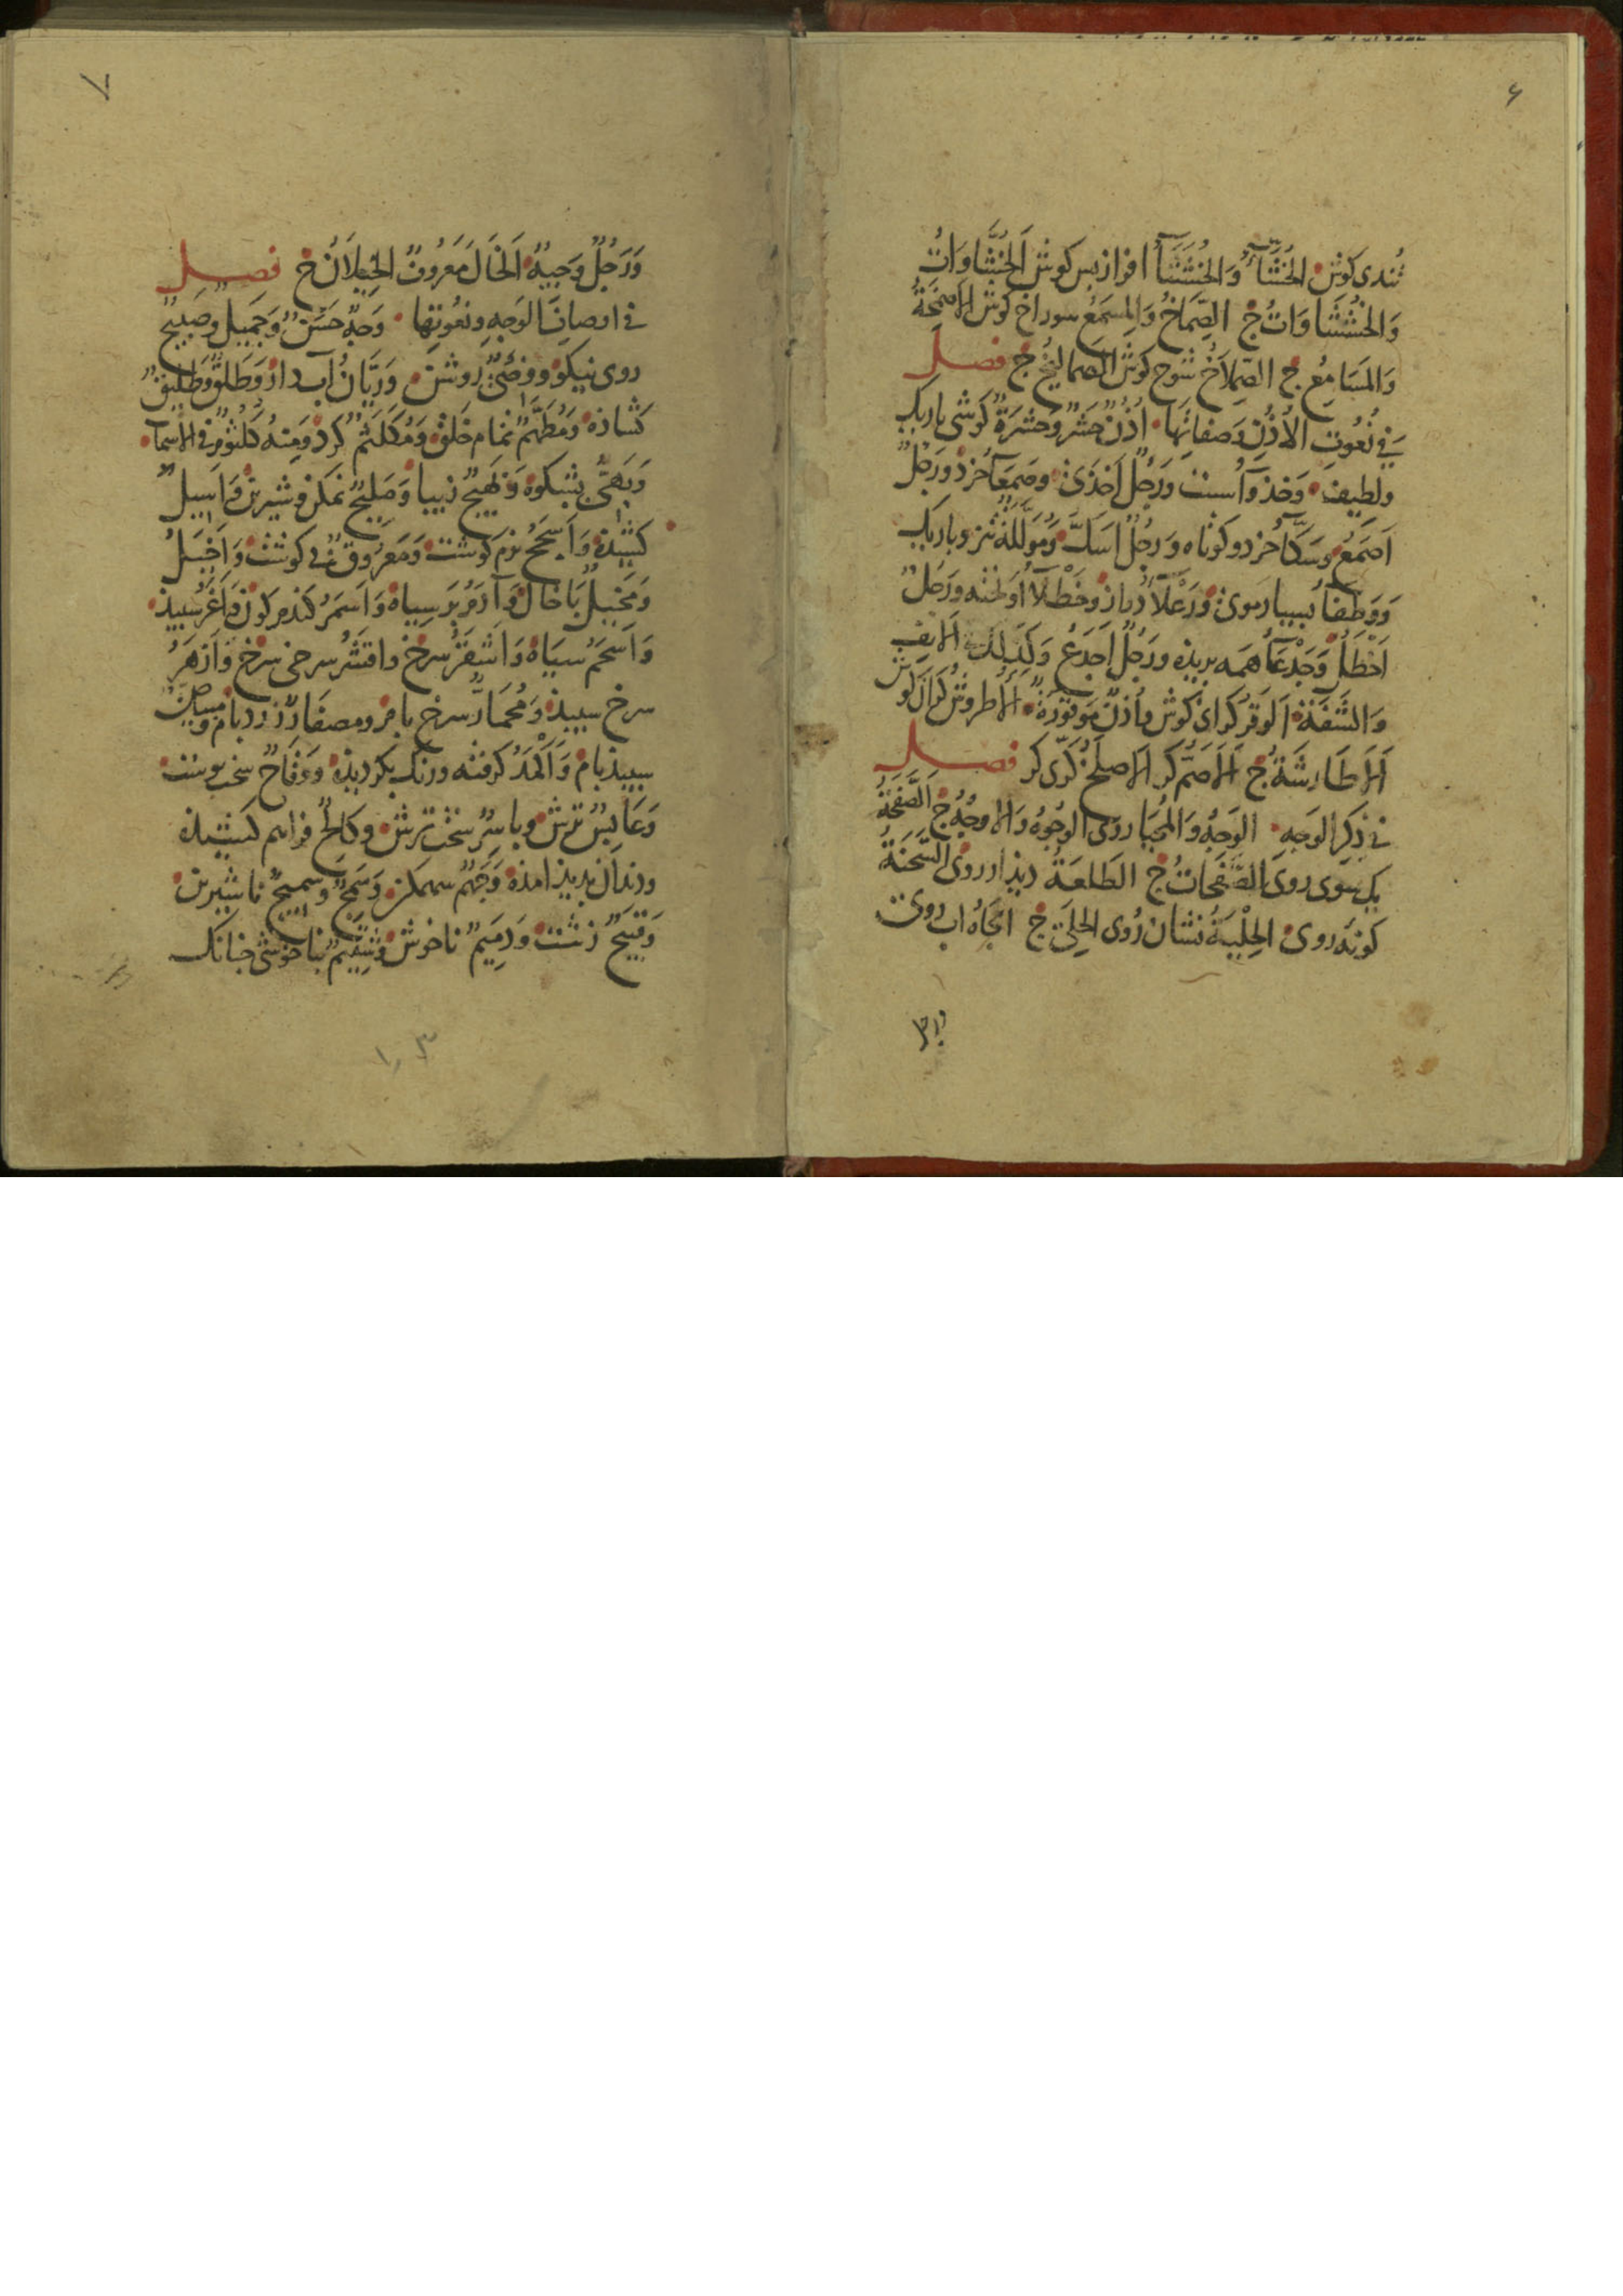 ۶
تُندی کوش الخُشَّآءُ وَالخُشَشَآءُ افراز بس کوش الخُشَّاوَاتُ
وَالخُشَشَاوَاتُ ج الصِّمَاخُ وَالمِسمَعُ سوراخ کوش الاَصمِخَةُ
وَالمَسَامِعُ ج الصِّملَاخُ شوخ کوش الصَّمَالِیخُ ج فصل
فِی نُعُوتِ الاُذُنِ وَصِفَاتِهَا اُذُنٌ حَشرٌ وَحَشرَةٌ کوشی باریک
ولطیف وَخَذوَآءُ سست وَرَجُلٌ اَخذَی وصَمعَآءُ خرد وَرَجُلٌ
اَصمَعُ وسَکَّآءُ خرد و کوتاه وَرَجُلٌ اَسَکُّ وَمُؤَلَّلَةٌ تیز وباریک
وَوَطفَآءُ بسیار موی وَرَعلَآءُ دراز وخَطلَآءُ اوٓیخته وَرَجُلٌ
اَخطَلُ وَجَدعَآءُ همه بریذه ورَجُلٌ اَجدَعُ وَکَذٰلِکَ الاَنفُ
وَالشَّفَةُ اَلوَقرُ کرانی کوش وَاُذُنٌ مَوقُورَةٌ الاُطرُوشُ کران کوش
اَلاَطَارِشَةُ ج اَلاَصَمُّ کر الاَصلَخُ کرّی کر فصل
فِی ذِکرِ الوَجهِ الوَجهُ وَالمُحَیَّا روی الوُجُوهُ وَالاَوجُهُ ج اَلصَّفحَةُ
یک سوی روی الصَّفَحَاتُ ج الطَلعَةُ دیذار روی السَّحنَةُ
کونهٔ روی الحِلْیَةُ نشان رُوی الحِلَی ج الجَاهُ اب روی
۷
وَرَجُلٌ وَجِیهٌ اَلخَالُ مَعرُوفٌ الخِیلَانُ ج فصل
فی اوصاف الوَجهِ ونُعُوتِها وَجهٌ حَسَنٌ وَجَمِیلٌ وصَبِیحٌ
روی نیکو ووَضِیٌّ روشن وَرَیَّانُ آب دار وَطَلقٌ وَطَلِیقٌ
کشاذه ومُطَهَّمٌ تمام خلق وَمُکَلثَمٌ کرد وَمِنهُ کُلثُومٌ فی الاَسمآء
وَبَهِیٌّ بشکوه وَبَهِیجٌ زیبا وَمَلِیحٌ نمکن وشیرین وَاَسِیلٌ
کشیذه وَاَسجَحُ نرم کوشت وَمَعرُوقٌ بی کوشت وَاَخیَلُ
وَمَخِیلٌ با خال وَآدَمُ بر سیاه وَاَسمَرُ کندم کون وَاَغَرُّ سبیذ
وَاَسحَمُ سیاه وَاَشقَرُ سرخ واقشَرُ سرخی سرخ وَاَزهَرُ
سرخ سبیذ وَمُحمَارٌّ سرخ بام ومصفَارٌّ زرد بام ومبیاضٌّ
سبیذ بام وَاَکمَدُ کرفته ورنک بکردیذه ووَقَاحٌ سخت بوست
وَعَابِسٌ ترش وبَاسِرٌ سخت ترش وکَالِحٌ فراهم کشیذه
ودندان بدیذ امذه وَجَهمٌ سهمکن وَسَمِجٌ وسَمِیجٌ نا شیرین
وَقَبِیحٌ زشت وَدَمِیمٌ ناخوش وشَتِیمٌ بناخوشی جنانک